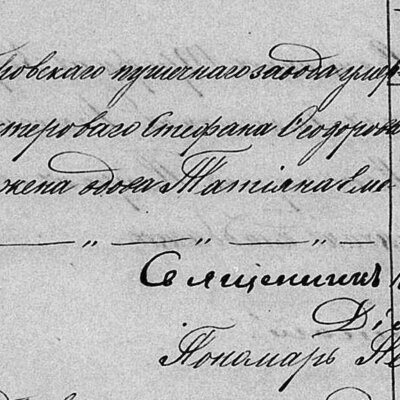 ровскаго пушечнаго завода умер
стероваго Стефана Ѳеодорова
жена вдова Татіана Емо
— „ — „ — „ —
Священникъ
Ді
Пономарь